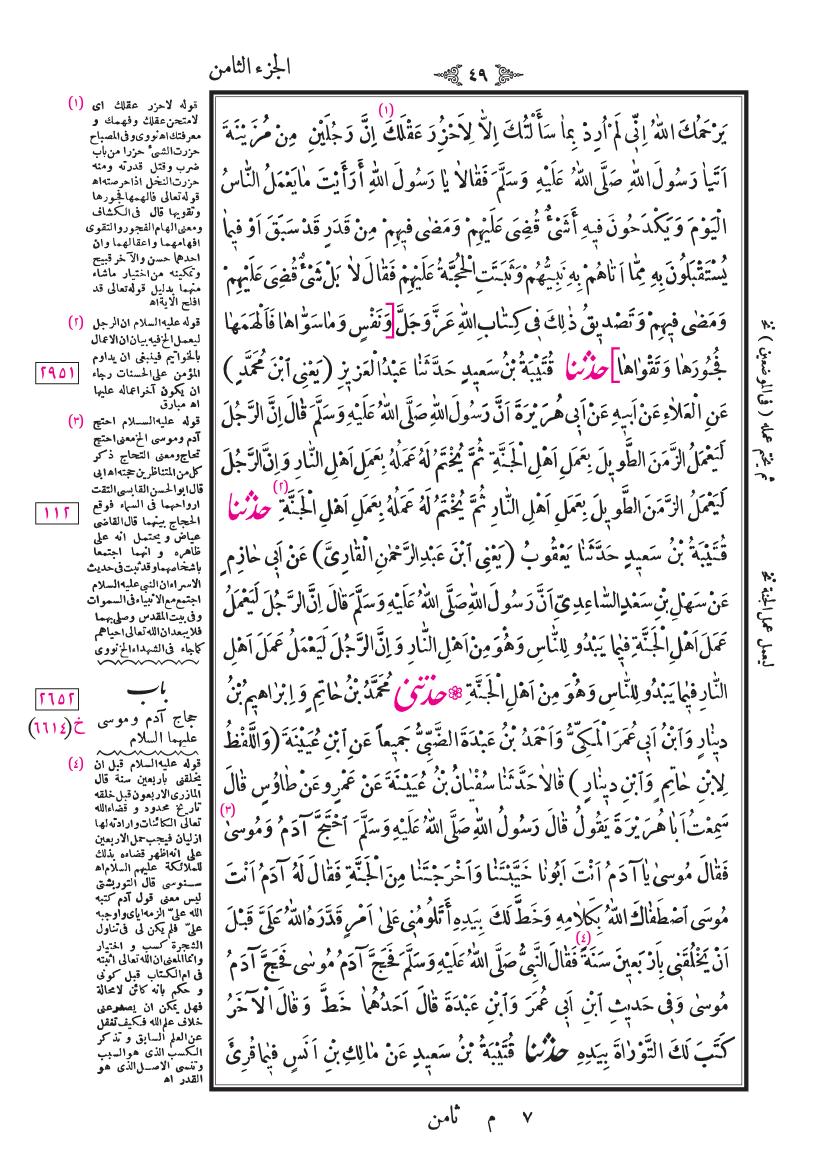 الجزء الثامن
٤٩
يَرْحَمُكَ اللّٰهُ اِنّى لَمْ اُرِدْ بِما سَأَلْتُكَ اِلاّ لِاَحْزُرَ عَقْلَكَ (١) اِنَّ رَجُلَيْنِ مِنْ مُزَيْنَةَ
اَتَيا رَسُولَ اللّٰهِ صَلَّى اللّٰهُ عَلَيْهِ وَسَلَّمَ فَقالا يا رَسُولَ اللّٰهِ أَرَأَيْتَ مايَعْمَلُ النّاسُ
الْيَوْمَ وَيَكْدَحُونَ فيهِ أَشَىْءٌ قُضِىَ عَلَيْهِمْ وَمَضٰى فيهِمْ مِنْ قَدَرٍ قَدْ سَبَقَ اَوْ فيما
يُسْتَقْبَلُونَ بِهِ مِمّا اَتاهُمْ بِهِ نَبِيُّهُمْ وَثَبَتَتِ الْحُجَّةُ عَلَيْهِمْ فَقالَ لا بَلْ شَىْءٌ قُضِىَ عَلَيْهِمْ
وَمَضٰى فيهِمْ وَتَصْديقُ ذٰلِكَ فى كِتابِ اللّٰهِ عَزَّ وَجَلَّ [وَنَفْسٍ وَماسَوّاها فَاَلْهَمَها
فُجُورَها وَتَقْواها] حدّثنا قُتَيْبَةُ بْنُ سَعيدٍ حَدَّثَنا عَبْدُ الْعَزيزِ (يَعْنِى ابْنَ مُحَمَّدٍ)
عَنِ الْعَلاءِ عَنْ اَبيهِ عَنْ اَبى هُرَيْرَةَ اَنَّ رَسُولَ اللّٰهِ صَلَّى اللّٰهُ عَلَيْهِ وَسَلَّمَ قالَ اِنَّ الرَّجُلَ
لَيَعْمَلُ الزَّمَنَ الطَّويلَ بِعَمَلِ اَهْلِ الْجَنَّةِ ثُمَّ يُخْتَمُ لَهُ عَمَلُهُ بِعَمَلِ اَهْلِ النّارِ وَاِنَّ الرَّجُلَ
لَيَعْمَلُ الزَّمَنَ الطَّويلَ بِعَمَلِ اَهْلِ النّارِ ثُمَّ يُخْتَمُ لَهُ عَمَلُهُ بِعَمَلِ اَهْلِ الْجَنَّةِ (٢) حدّثنا
قُتَيْبَةُ بْنُ سَعيدٍ حَدَّثَنا يَعْقُوبُ (يَعْنِى ابْنَ عَبْدِ الرَّحْمٰنِ الْقارِىَّ) عَنْ اَبى حازِمٍ
عَنْ سَهْلِ بْنِ سَعْدٍ السّاعِدِىِّ اَنَّ رَسُولَ اللّٰهِ صَلَّى اللّٰهُ عَلَيْهِ وَسَلَّمَ قالَ اِنَّ الرَّجُلَ لَيَعْمَلُ
عَمَلَ اَهْلِ الْجَنَّةِ فيما يَبْدُو لِلنّاسِ وَهُوَ مِنْ اَهْلِ النّارِ وَاِنَّ الرَّجُلَ لَيَعْمَلُ عَمَلَ اَهْلِ
النّارِ فيما يَبْدُو لِلنّاسِ وَهُوَ مِنْ اَهْلِ الْجَنَّةِ ❁ حدّثنى مُحَمَّدُ بْنُ حاتِمٍ وَاِبْراهيمُ بْنُ
دينارٍ وَابْنُ اَبى عُمَرَ الْمَكِّىُّ وَاَحْمَدُ بْنُ عَبْدَةَ الضَّبِّىُّ جَميعاً عَنِ ابْنِ عُيَيْنَةَ (وَاللَّفْظُ
لِابْنِ حاتِمٍ وَابْنِ دينارٍ) قالا حَدَّثَنا سُفْيانُ بْنُ عُيَيْنَةَ عَنْ عَمْرٍو عَنْ طاوُسٍ قالَ
سَمِعْتُ اَبا هُرَيْرَةَ يَقُولُ قالَ رَسُولُ اللّٰهِ صَلَّى اللّٰهُ عَلَيْهِ وَسَلَّمَ اِحْتَجَّ آدَمُ وَمُوسٰى (٣)
فَقالَ مُوسٰى يا آدَمُ اَنْتَ اَبُونا خَيَّبْتَنا وَاَخْرَجْتَنا مِنَ الْجَنَّةِ فَقالَ لَهُ آدَمُ اَنْتَ
مُوسَى اصْطَفاكَ اللّٰهُ بِكَلامِهِ وَخَطَّ لَكَ بِيَدِهِ أَتَلُومُنى عَلىٰ اَمْرٍ قَدَّرَهُ اللّٰهُ عَلَىَّ قَبْلَ
اَنْ يَخْلُقَنى بِاَرْبَعينَ سَنَةً (٤) فَقالَ النَّبِىُّ صَلَّى اللّٰهُ عَلَيْهِ وَسَلَّمَ فَحَجَّ آدَمُ مُوسٰى فَحَجَّ آدَمُ
مُوسٰى وَفى حَديثِ ابْنِ اَبى عُمَرَ وَابْنِ عَبْدَةَ قالَ اَحَدُهُما خَطَّ وَقالَ الْآخَرُ
كَتَبَ لَكَ التَّوْراةَ بِيَدِهِ حدّثنا قُتَيْبَةُ بْنُ سَعيدٍ عَنْ مالِكِ بْنِ اَنَسٍ فيما قُرِئَ
(١) قوله لاحزر عقلك اى
لامتحن عقلك وفهمك و
معرفتك اه نووى وفى المصباح
حزرت الشئ حزرا من باب
ضرب وقتل قدرته ومنه
حزرت النخل اذا خرصته اه
قوله تعالى فالهمها فجورها
وتقويها قال فى الكشاف
ومعنى الهام الفجور والتقوى
افهامهما واعقالهما وان
احدهما حسن والآخر قبيح
وتمكينه من اختيار ماشاء
منهما بدليل قوله تعالى قد
افلح الآية اه
(٢) قوله عليه السلام ان الرجل
ليعمل الخ فيه بيان ان الاعمال
بالخواتيم فينبغى ان يداوم
المؤمن على الحسنات رجاء
ان يكون آخر اعماله عليها
اه مبارق
٢٩٥١
(٣) قوله عليه السلام احتج
آدم وموسى الخ معنى احتج
تحاج ومعنى التحاج ذكر
كل من المتناظرين حجته اه ابى
قال ابوالحسن القابسى التقت
ارواحهما فى السماء فوقع
الحجاج بينهما قال القاضى
عياض ويحتمل انه على
ظاهره و انهما اجتمعا
باشخاصهما وقد ثبت فى حديث
الاسراء ان النبى عليه السلام
اجتمع مع الانبياء فى السموات
وفى بيت المقدس وصلى بهما
فلا يبعد ان الله تعالى احياهم
كما جاء فى الشهداء الخ نووى
١١٢
باب
حجاج آدم وموسى
عليهما السلام
٢٦٥٢
خ (٦٦١٤)
(٤) قوله عليه السلام قبل ان
يخلقنى بأربعين سنة قال
المازرى الاربعون قبل خلقه
تاريخ محدود و قضاء الله
تعالى الكائنات وارادته لها
ازليان فيجب حمل الاربعين
على انه اظهر قضاءه بذلك
للملائكة عليهم السلام اه
سنوسى قال التوربشتى
ليس معنى قول آدم كتبه
الله علىّ الزمه اياى واوجبه
علىّ فلم يكن لى فى تناول
الشجرة كسب و اختيار
وانما المعنى ان الله تعالى اثبته
فى ام الكتاب قبل كونى
و حكم بانه كائن لا محالة
فهل يمكن ان يصدر عنى
خلاف علم الله فكيف تغفل
عن العلم السابق و تذكر
الكسب الذى هو السبب
وتنسى الاصل الذى هو
القدر اه
ثم يختم عمله (فى الموضعين) نخ
ليعمل عمل الجنة نخ
٧ م ثامن